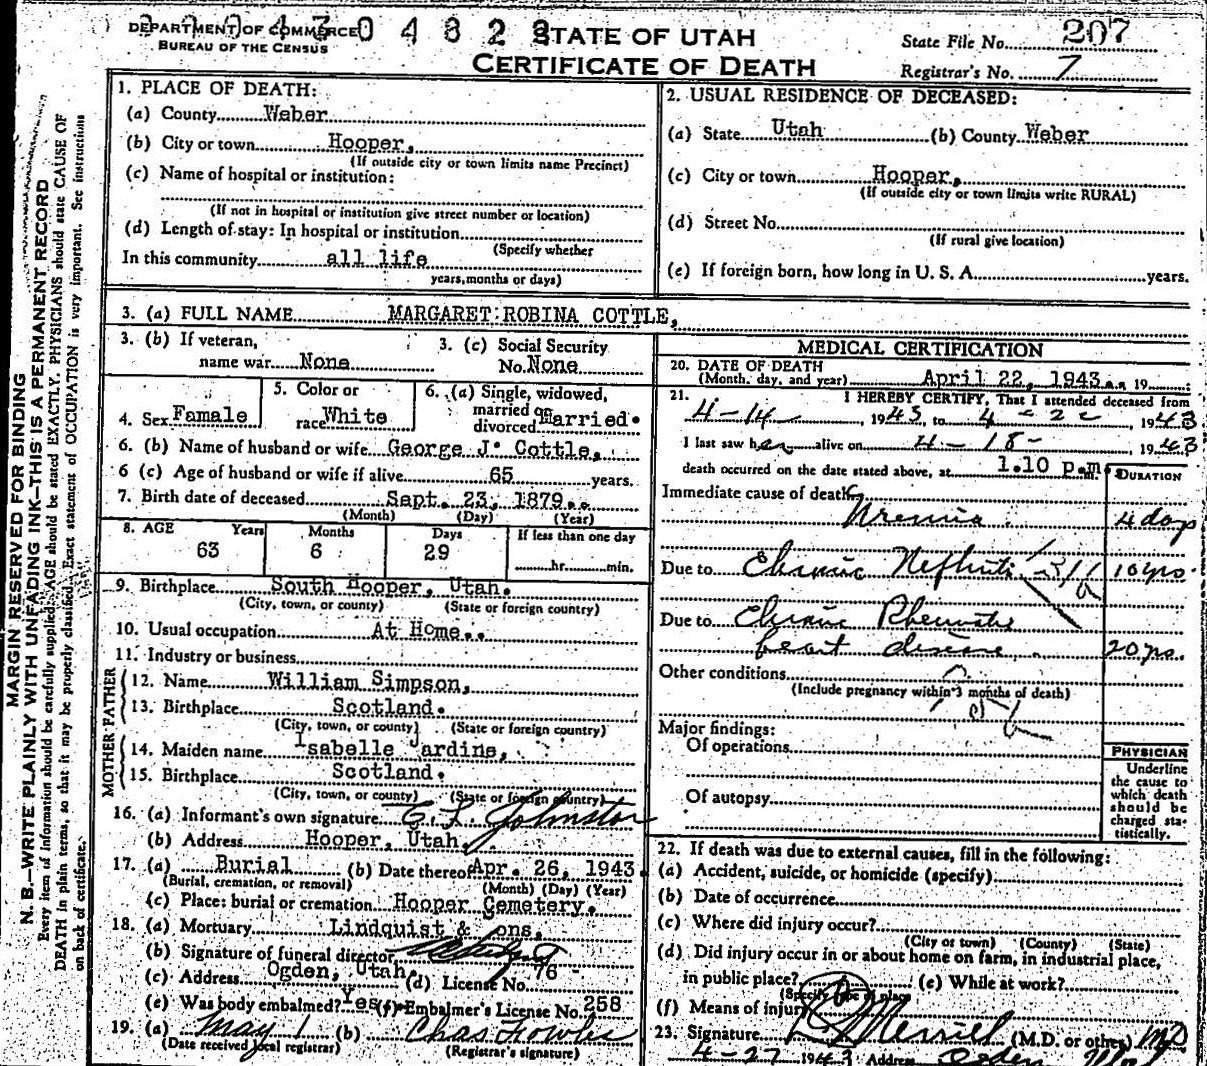 DEPARTMENT OF COMMERCE
BUREAU OF THE CENSUS
STATE OF UTAH
CERTIFICATE OF DEATH
State File No. 207
Registrar's No. 7
MARGIN RESERVED FOR BINDING
N. B.—WRITE PLAINLY WITH UNFADING INK—THIS IS A PERMANENT RECORD
Every item of information should be carefully supplied. AGE should be stated EXACTLY. PHYSICIANS should state CAUSE OF
DEATH in plain terms, so that it may be properly classified. Exact statement of OCCUPATION is very important. See instructions
on back of certificate.
1. PLACE OF DEATH:
(a) County Weber
(b) City or town Hooper,
(If outside city or town limits name Precinct)
(c) Name of hospital or institution:
(If not in hospital or institution give street number or location)
(d) Length of stay: In hospital or institution
(Specify whether
In this community all life
years, months or days)
2. USUAL RESIDENCE OF DECEASED:
(a) State Utah (b) County Weber
(c) City or town Hooper,
(If outside city or town limits write RURAL)
(d) Street No.
(If rural give location)
(e) If foreign born, how long in U. S. A. years.
3. (a) FULL NAME MARGARET ROBINA COTTLE,
3. (b) If veteran,
name war None
3. (c) Social Security
No. None
4. Sex Famale
5. Color or
race White
6. (a) Single, widowed,
married or
divorced Married.
6. (b) Name of husband or wife George J. Cottle,
6 (c) Age of husband or wife if alive 65 years.
7. Birth date of deceased Sept. 23, 1879..
(Month) (Day) (Year)
8. AGE Years Months Days If less than one day
63 6 29 hr. min.
9. Birthplace South Hooper, Utah.
(City, town, or county) (State or foreign country)
10. Usual occupation At Home..
11. Industry or business
FATHER
12. Name William Simpson,
13. Birthplace Scotland.
(City, town, or county) (State or foreign country)
MOTHER
14. Maiden name Isabelle Jardine,
15. Birthplace Scotland.
(City, town, or county) (State or foreign country)
16. (a) Informant's own signature C. L. Johnston
(b) Address Hooper, Utah,
17. (a) Burial (b) Date thereof Apr. 26, 1943.
(Burial, cremation, or removal) (Month) (Day) (Year)
(c) Place: burial or cremation Hooper Cemetery.
18. (a) Mortuary Lindquist & ons,
(b) Signature of funeral director
(c) Address Ogden, Utah. (d) License No. 76
(e) Was body embalmed? Yes (f) Embalmer's License No. 258
19. (a) May 1 (b) Chas Fowler
(Date received local registrar) (Registrar's signature)
MEDICAL CERTIFICATION
20. DATE OF DEATH
(Month, day, and year) April 22, 1943.. 19
21. I HEREBY CERTIFY, That I attended deceased from
4-14 , 1943, to 4-22 , 1943
I last saw her alive on 4-18- , 1943
death occurred on the date stated above, at 1.10 p.m. DURATION
Immediate cause of death
Uremia 4 days
Due to Chronic Nefhritis 10 yrs.
Due to Chronic Rheumatic
heart disease 20 yrs.
Other conditions
(Include pregnancy within 3 months of death)
Major findings:
Of operations
Of autopsy
PHYSICIAN
Underline
the cause to
which death
should be
charged sta-
tistically.
22. If death was due to external causes, fill in the following:
(a) Accident, suicide, or homicide (specify)
(b) Date of occurrence
(c) Where did injury occur?
(City or town) (County) (State)
(d) Did injury occur in or about home on farm, in industrial place,
in public place? (e) While at work?
(Specify type of place)
(f) Means of injury
23. Signature Merrill (M.D. or other) MD
4-27 1943 Address Ogden Utah